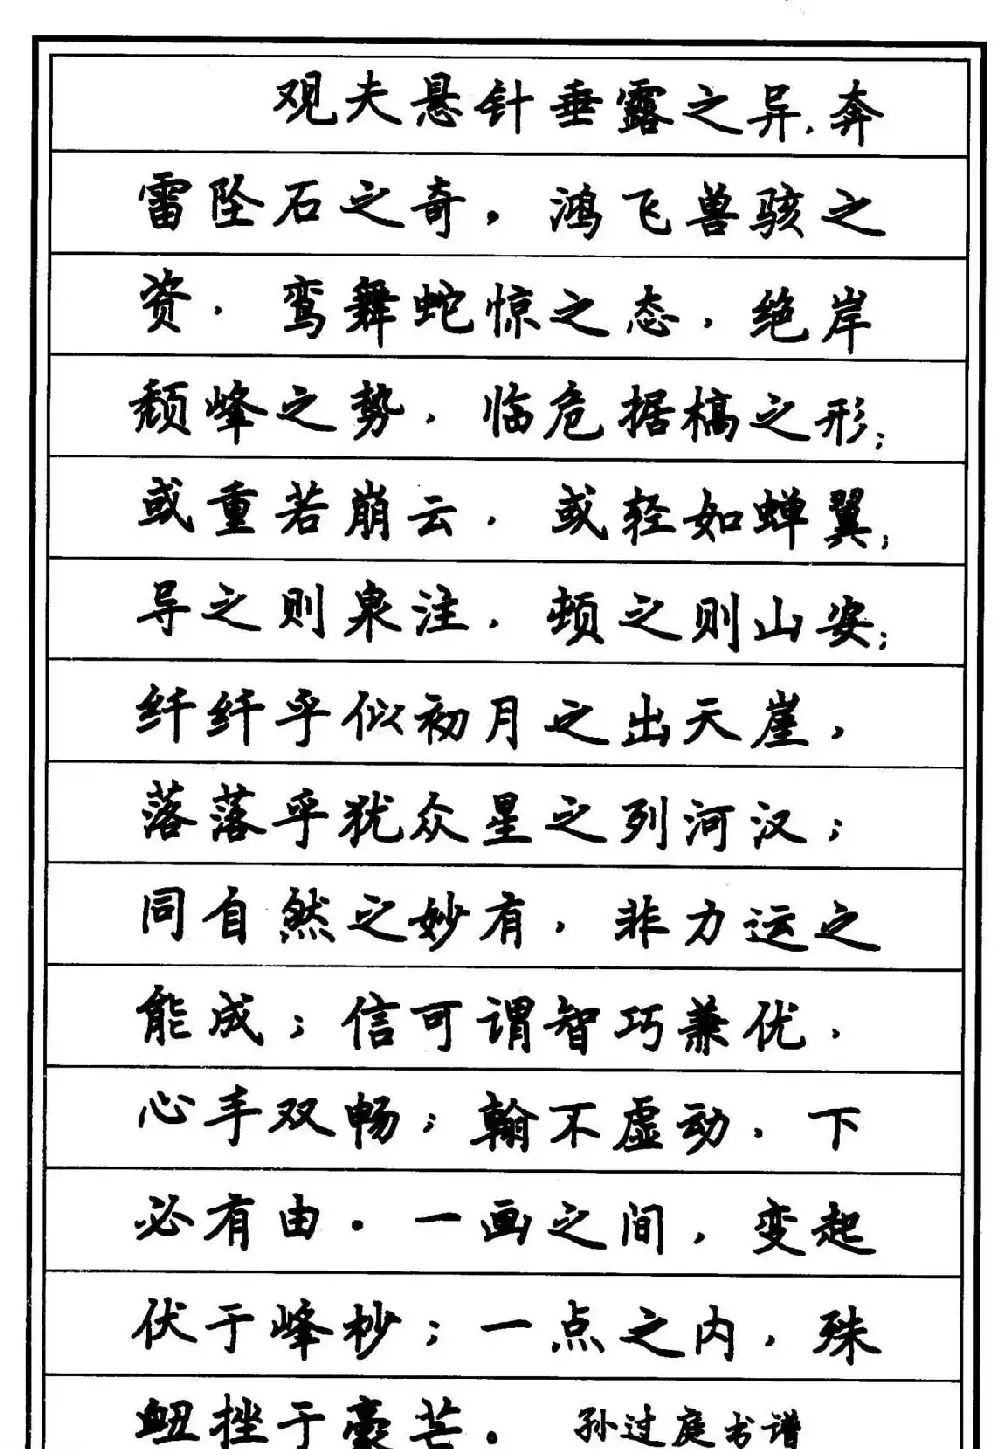 观夫悬针垂露之异,奔
雷坠石之奇,鸿飞兽骇之
资,鸾舞蛇惊之态,绝岸
颓峰之势,临危据槁之形;
或重若崩云,或轻如蝉翼;
导之则泉注,顿之则山安;
纤纤乎似初月之出天崖,
落落乎犹众星之列河汉;
同自然之妙有,非力运之
能成;信可谓智巧兼优,
心手双畅;翰不虚动,下
必有由。一画之间,变起
伏于峰杪;一点之内,殊
衄挫于豪芒。孙过庭书谱